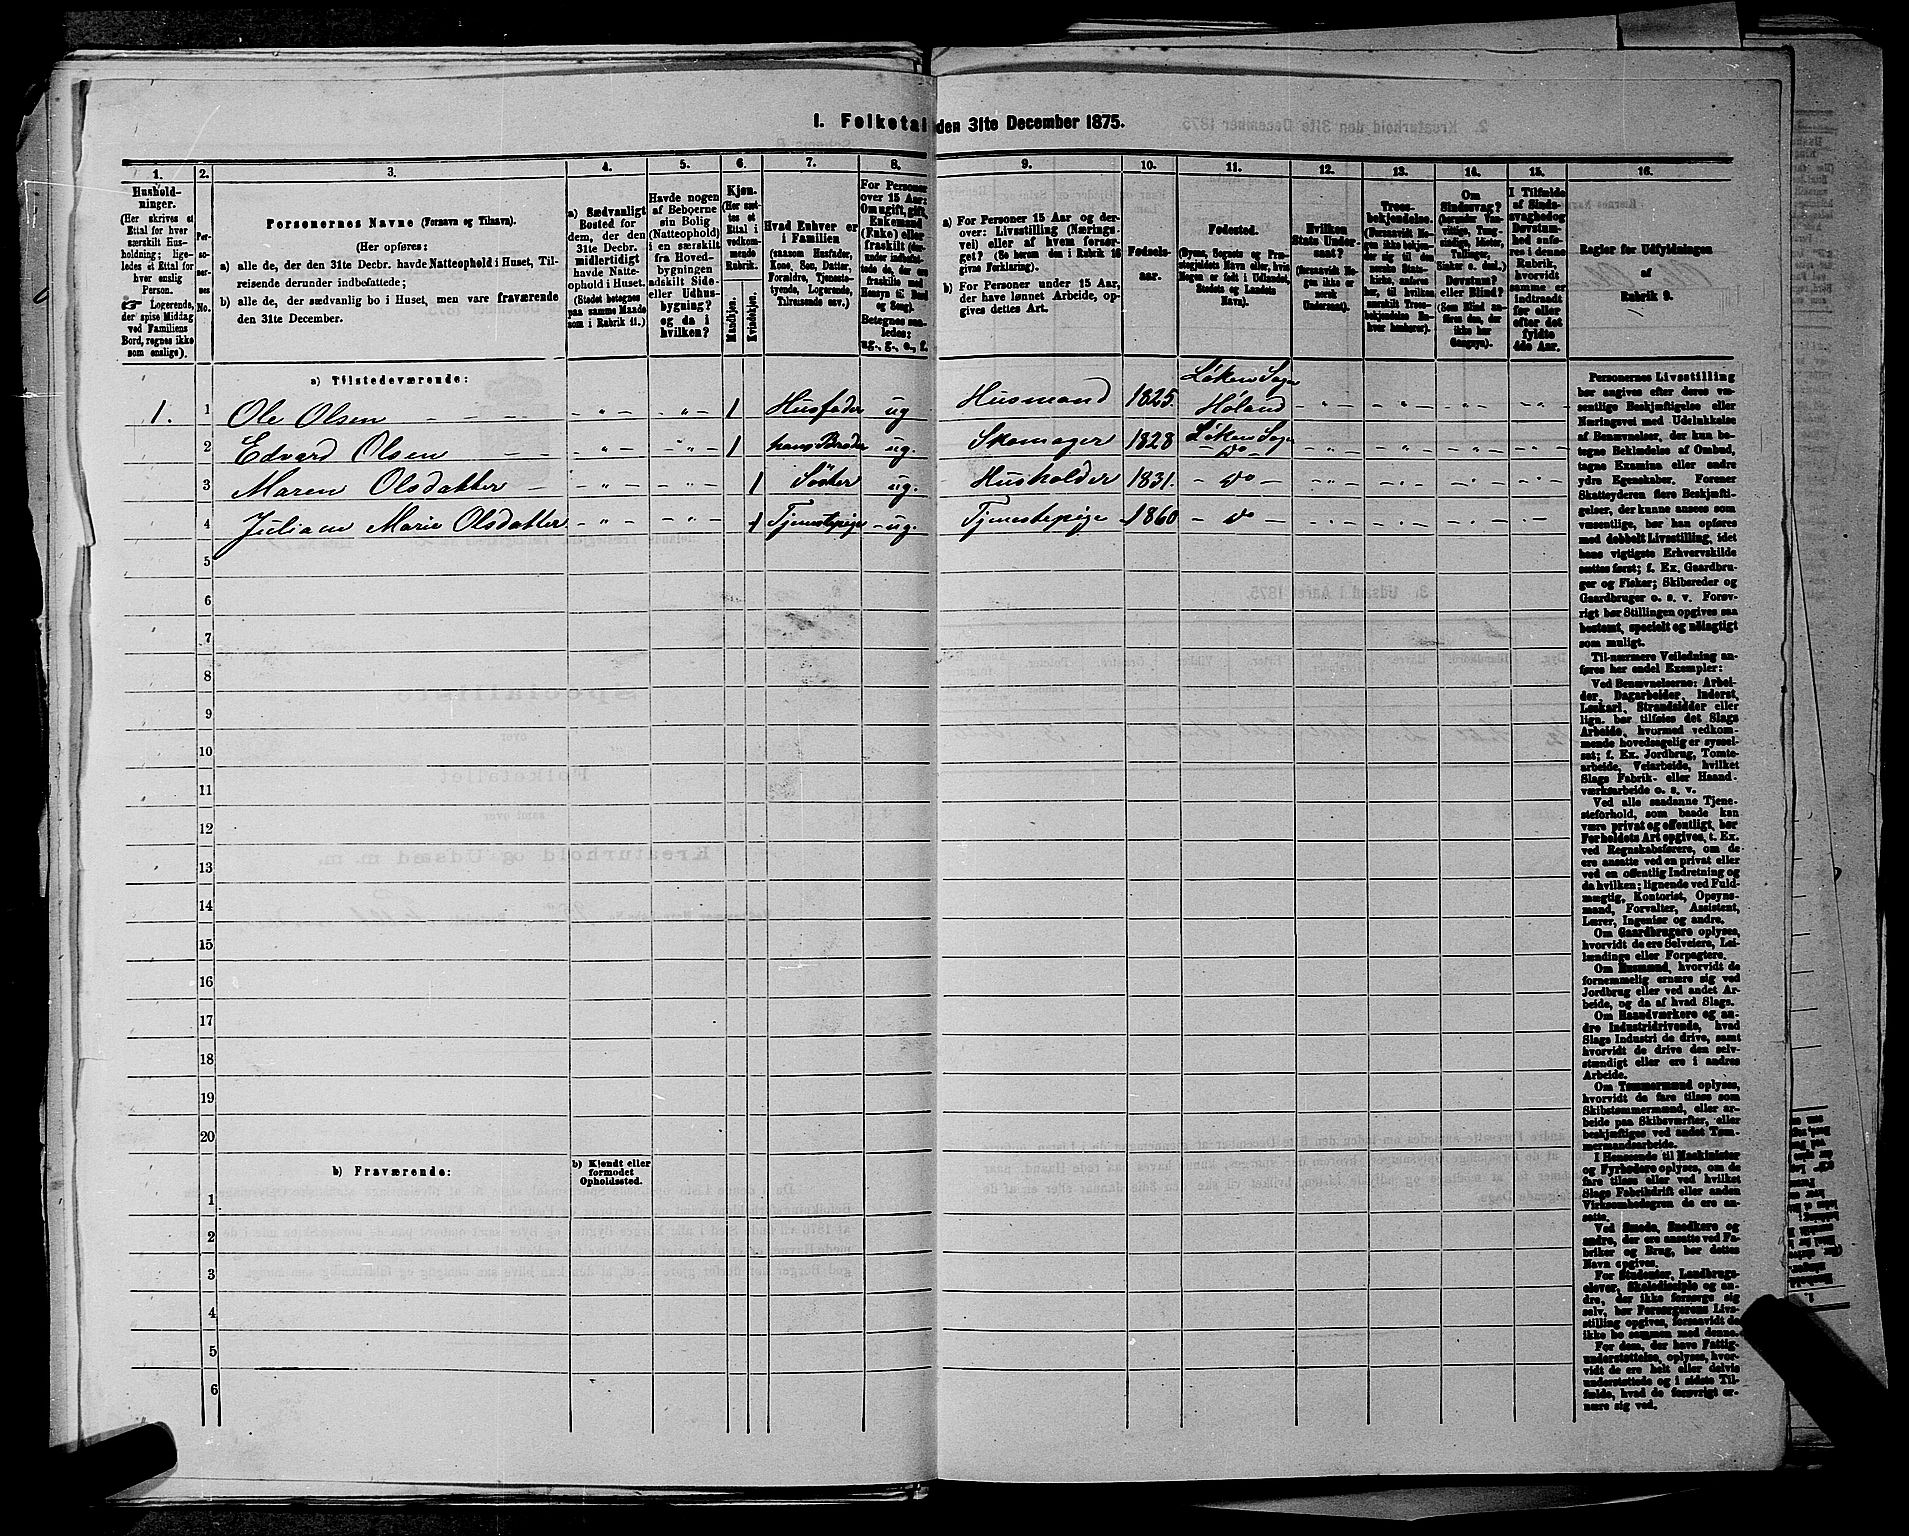 1. Folketal den 31te December 1875.
1. 2. 3. 4. 5. 6. 7. 8. 9. 10. 11. 12. 13. 14. 15. 16.
Hushold-
ninger.
(Her skrives et
Ettal for hver
særskilt Hus-
holdning; lige-
ledes et Ettal for
hver enslig
Person.
☞ Logerende,
der spise Middag
ved Familiens
Bord, regnes ikke
som enslige).
Per-
so-
ner-
nes
No.
Personernes Navne (Fornavn og Tilnavn).
(Her opføres:
a) alle de, der den 31te Decbr. havde Natteophold i Huset, Til-
reisende derunder indbefattede;
b) alle de, der sædvanlig bo i Huset, men vare fraværende
den 31te December.
a) Sædvanligt
Bosted for
dem, der den
31te Decbr.
midlertidigt
havde Natte-
ophold i Huset.
(Stedet betegnes
paa samme Maade
som i Rubrik 11.)
Havde nogen
af Beboerne
sin Bolig
(Natteophold)
i en særskilt
fra Hoved-
bygningen
adskilt Side-
eller Udhus-
bygning?
og da i
hvilken?
Kjøn.
(Her sæt-
tes et
Ettal i
vedkom-
mende
Rubrik.
Mandkjøn.
Kvindekjøn.
Hvad Enhver er
i Familien
(saasom Husfader,
Kone, Søn, Datter,
Forældre, Tjeneste-
tyende, Logerende,
Tilreisende osv.)
For Personer
over 15 Aar:
Om ugift, gift,
Enkemand
(Enke) eller
fraskilt
Betegnes saa-
ledes:
ug., g., e., f.
a) For Personer 15 Aar og der-
over: Livsstilling (Nærings-
vei) eller af hvem forsør-
get? (Se herom den i Rubrik 16
givne Forklaring).
b) For Personer under 15 Aar,
der have lønnet Arbeide, op-
gives dettes Art.
Fødsels-
aar.
Fødested.
(Byens, Sognets og Præ-
stegjeldets Navn eller, hvis
Nogen er født i Udlandet,
Stedets og Landets
Navn).
Hvilken
Stats Under-
saat?
(forsaavidt No-
gen ikke er
norsk
Undersaat).
Troes-
bekjendelse.
(Forsaavidt No-
gen ikke bekjen-
der sig til den
norske Stats-
kirke, anføres
her, til hvilken
særskilt Troes-
bekjendelse En-
hver henhører).
Om
Sindssvag?
Døvstum?
eller Blind?
(Som Blind an-
føres den, der
ikke har
Gangsyn).
I Tilfælde
af Sinds-
svaghed og
Døvstum-
hed anfø-
res i denne
Rubrik,
hvorvidt
samme er
indtraadt
før eller
efter det
fyldte
4de Aar.
Regler for Udfyldningen
af
Rubrik 9.
a) Tilstedeværende:
1. 1 Ole Olsen - " - - " - 1 Husfader ug Husmand 1825. Løken Sogn Høland
2 Edvard Olsen - " - - " - 1 hans Broder ug. Skomager 1828 Løken Sogn Do
3 Maren Olsdatter - " - - " - 1 Söster ug. Husholder 1831. - Do
4 Juliane Marie Olsdatter - " - - " - 1 Tjenestepige - ug. Tjenestepige 1860 - Do
5
6
7
8
9
10
11
12
13
14
15
16
17
18
19
20
b) Fraværende: b) Kjendt eller
formodet
Opholdssted.
1
2
3
4
5
6
Personernes Livsstilling
bør angives efter deres væ-
sentlige Beskjæftigelse eller
Næringsvei med Udelukkelse
af Benævnelser, der kun be-
tegne Beklædelse af Ombud,
tagne Examina eller andre
ydre Egenskaber. Forener
Skatteyderen flere Beskjæfti-
gelser, der kunne ansees som
væsentlige, bør han opføres
med dobbelt Livsstilling, idet
hans vigtigste Erhvervskilde
sættes først; f. Ex. Gaardbru-
ger og Fisker; Skibsreder og
Gaardbruger o. s. v. Forøv-
rigt bør Stillingen opgives saa
bestemt, specielt og nøiagtigt
som muligt.
Til nærmere Veiledning an-
føres her endel Exempler:
Ved Benævnelserne: Arbei-
der, Dagarbeider, Inderst,
Løskarl, Strandsidder eller
lign. bør tilføies det Slags
Arbeide, hvormed vedkom-
mende hovedsagelig er syssel-
sat; f. Ex. Jordbrug, Tomte-
arbeide, Veiarbeide, hvilket
Slags Fabrik- eller Haand-
værksarbeide o. s. v.
Ved alle saadanne Tjene-
steforhold, som baade kan
være privat og offentligt, bør
Forholdets Art opgives, t. Ex.
ved Regnskabsførere, om de
ere ansatte ved en privat eller
ved en offentlig Indretning og
da hvilken; lignende ved Fuld-
mægtig, Kontorist, Opsyns-
mand, Forvalter, Assistent,
Lærer, Ingeniør og andre.
Om Gaardbrugere oplyses,
hvorvidt de ere Selveiere, Lei-
lændinge eller Forpagtere.
Om Husmænd, hvorvidt de
fornemmelig ernære sig ved
Jordbrug eller ved andet Ar-
beide, og da af hvad Slags.
Om Haandværkere og an-
dre Industridrivende, hvad
Slags Industri de drive, samt
hvorvidt de drive den selv-
stændigt eller ere i andres
Arbeide.
Om Tømmermænd oplyses,
hvorvidt de fare tilsøs som
Skibstømmermænd, eller ar-
beide paa Skibsværfter, eller
beskjæftiges ved andet Tøm-
mermandsarbeide.
I Henseende til Maskinister
og Fyrbødere oplyses, om de
fare tilsøs eller ved hvilket
Slags Fabrikdrift eller anden
Virksomhedsgren de ere an-
satte.
Ved Smede, Snedkere og
andre, der ere ansatte ved Fa-
briker og Brug, bør dettes
Navn opgives.
For Studenter, Landbrugs-
elever, Skoledisciple og an-
dre, der ikke forsørge sig
selv, bør Forsørgerens Livs-
stilling opgives, forsaavidt de
ikke bo sammen med denne.
For dem, der have Fattig-
understøttelse, oplyses, hvor-
vidt de ere helt eller delvis
understøttede og i sidste Til-
fælde, hvad de forøvrigt er-
nære sig ved.